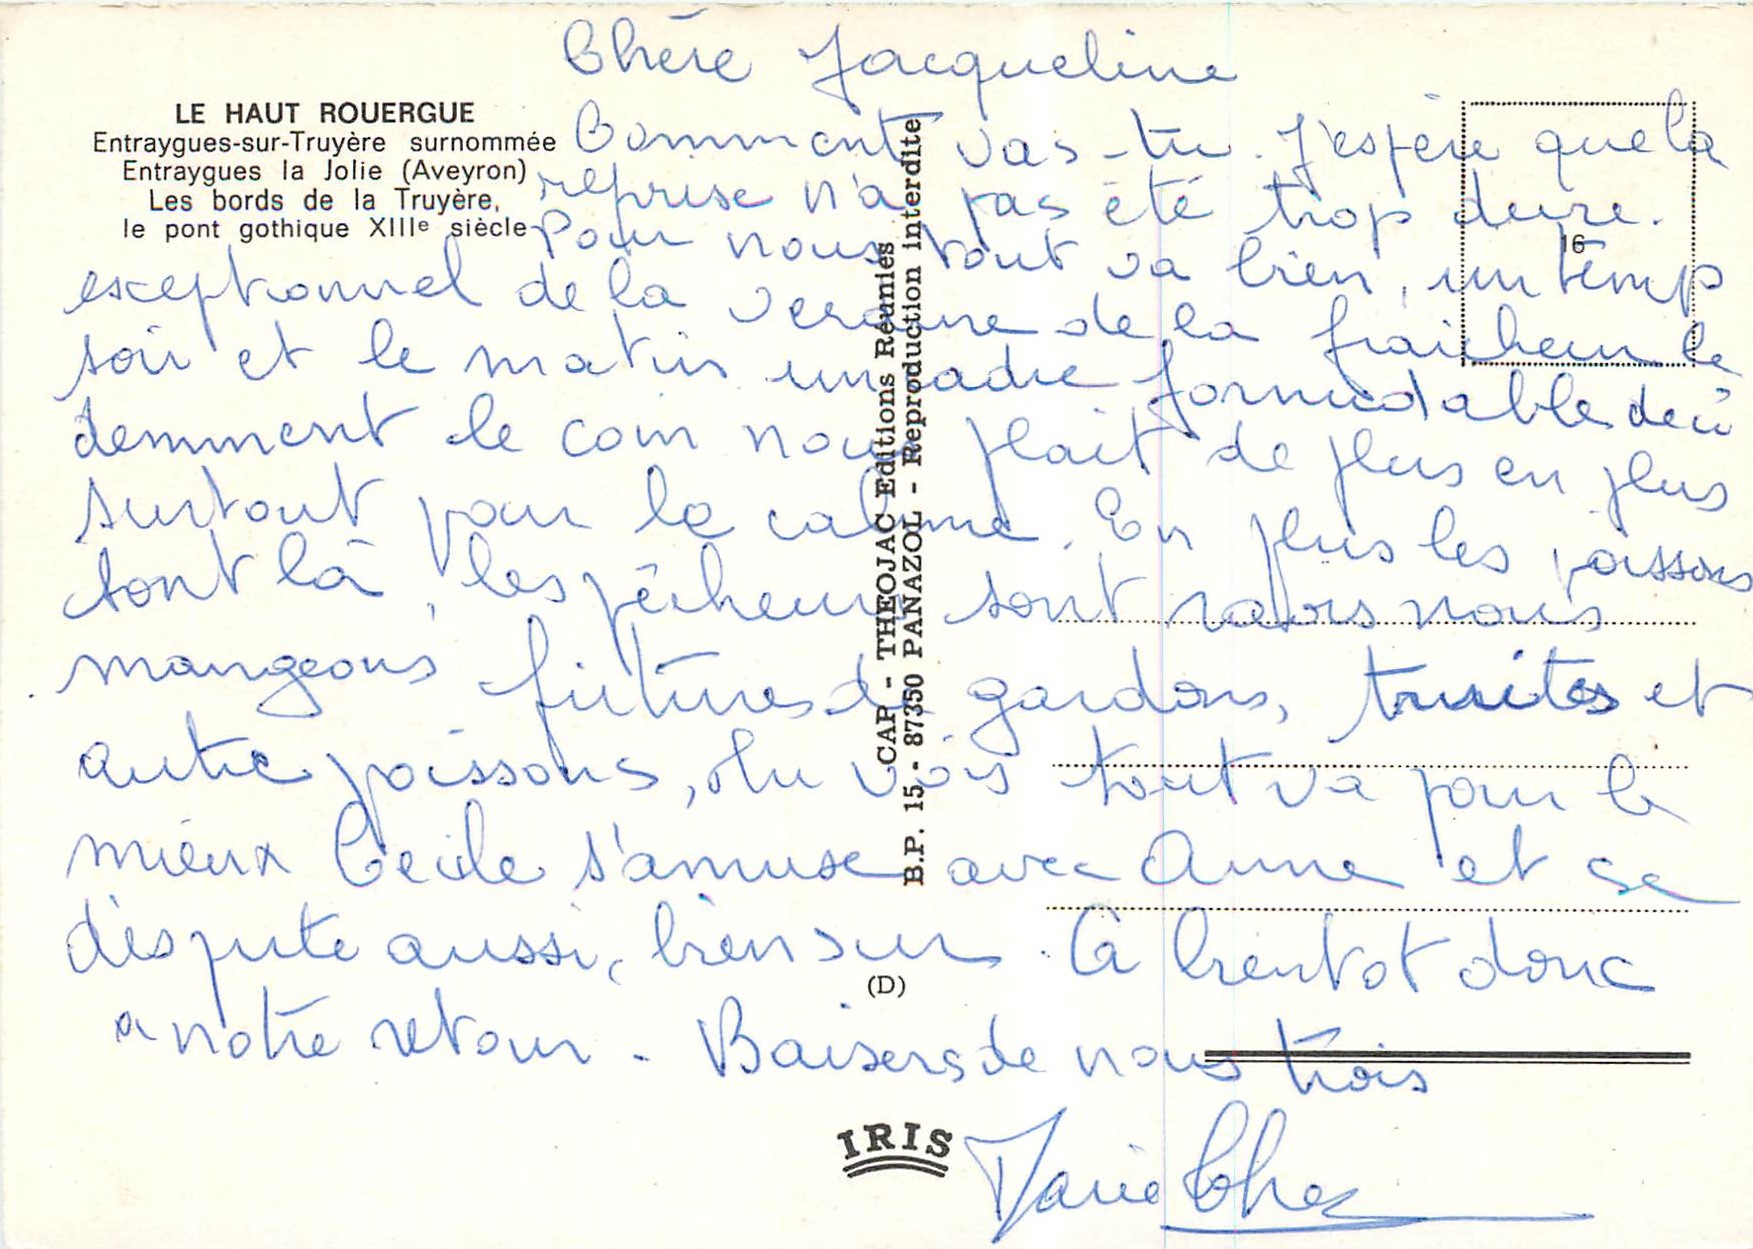 Chère Jacqueline
LE HAUT ROUERGUE
Entraygues-sur-Truyère surnommée
Entraygues la Jolie (Aveyron)
Les bords de la Truyère,
le pont gothique XIIIe siècle
Comment vas-tu. J'espère que la
reprise n'a pas été trop dure.
Pour nous tout va bien, un temp
exceptionnel de la verdure de la fraicheur le
soir et le matin un cadre formidable
demment le coin nous plait de plus en plus
surtout pour le calme. En plus les poissons
sont là, les pêcheurs sont ravis nous
mangeons fritures de gardons, truites et
autre poissons, tu vois tout va pour le
mieux Cecile s'amuse avec Anne et se
dispute aussi, bien sur. A bientot donc
a notre retour - Baisers de nous trois
Marie
16
CAP - THEOJAC Editions Réunies
B.P. 15 - 87350 PANAZOL - Reproduction interdite
(D)
IRIS